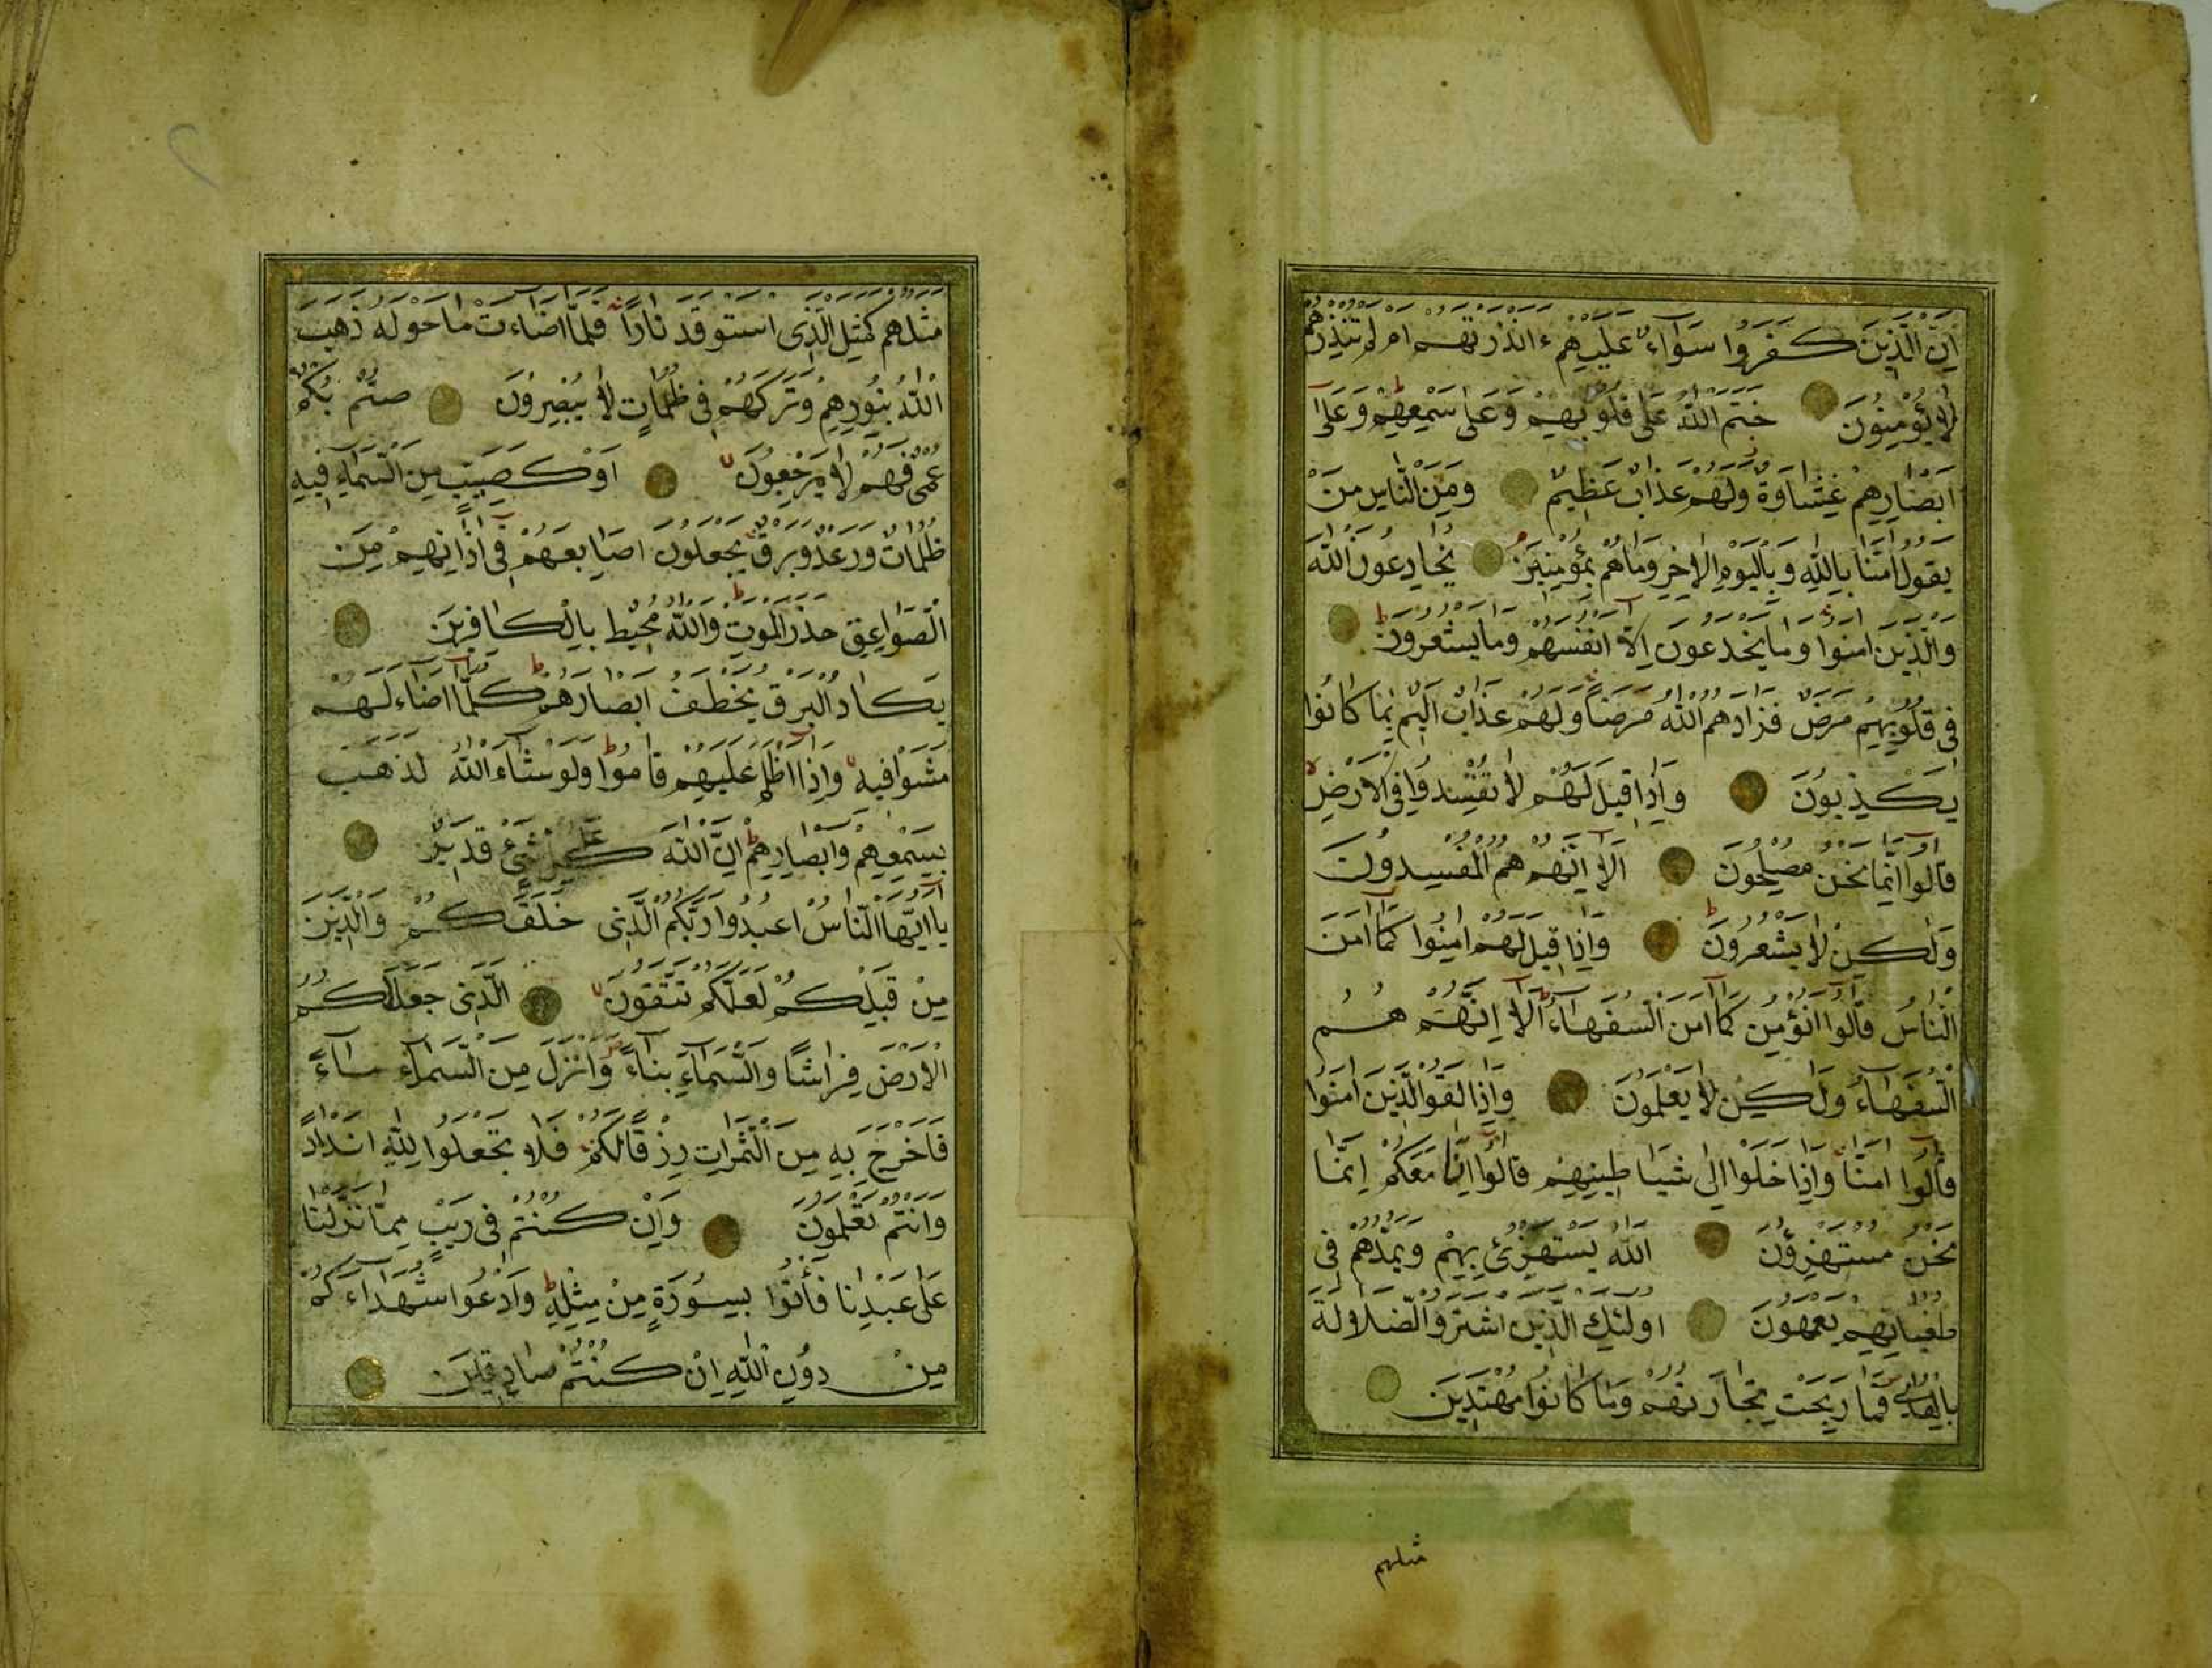 اِنَّ الَّذِينَ كَفَرُوا سَوَاءٌ عَلَيْهِمْ ءَاَنْذَرْتَهُمْ اَمْ لَمْ تُنْذِرْهُمْ
لَا يُؤْمِنُونَ خَتَمَ اللّٰهُ عَلٰى قُلُوبِهِمْ وَعَلٰى سَمْعِهِمْ وَعَلٰى
اَبْصَارِهِمْ غِشَاوَةٌ وَلَهُمْ عَذَابٌ عَظِيمٌ وَمِنَ النَّاسِ مَنْ
يَقُولُ اٰمَنَّا بِاللّٰهِ وَبِالْيَوْمِ الْاٰخِرِ وَمَا هُمْ بِمُؤْمِنِينَ يُخَادِعُونَ اللّٰهَ
وَالَّذِينَ اٰمَنُوا وَمَا يَخْدَعُونَ اِلَّا اَنْفُسَهُمْ وَمَا يَشْعُرُونَ
فِى قُلُوبِهِمْ مَرَضٌ فَزَادَهُمُ اللّٰهُ مَرَضًا وَلَهُمْ عَذَابٌ اَلِيمٌ بِمَا كَانُوا
يَكْذِبُونَ وَاِذَا قِيلَ لَهُمْ لَا تُفْسِدُوا فِى الْاَرْضِ
قَالُوا اِنَّمَا نَحْنُ مُصْلِحُونَ اَلَا اِنَّهُمْ هُمُ الْمُفْسِدُونَ
وَلٰكِنْ لَا يَشْعُرُونَ وَاِذَا قِيلَ لَهُمْ اٰمِنُوا كَمَا اٰمَنَ
النَّاسُ قَالُوا اَنُؤْمِنُ كَمَا اٰمَنَ السُّفَهَاءُ اَلَا اِنَّهُمْ هُمُ
السُّفَهَاءُ وَلٰكِنْ لَا يَعْلَمُونَ وَاِذَا لَقُوا الَّذِينَ اٰمَنُوا
قَالُوا اٰمَنَّا وَاِذَا خَلَوْا اِلٰى شَيَاطِينِهِمْ قَالُوا اِنَّا مَعَكُمْ اِنَّمَا
نَحْنُ مُسْتَهْزِؤُنَ اَللّٰهُ يَسْتَهْزِئُ بِهِمْ وَيَمُدُّهُمْ فِى
طُغْيَانِهِمْ يَعْمَهُونَ اُولٰئِكَ الَّذِينَ اشْتَرَوُا الضَّلَالَةَ
بِالْهُدٰى فَمَا رَبِحَتْ تِجَارَتُهُمْ وَمَا كَانُوا مُهْتَدِينَ
مثلهم
مَثَلُهُمْ كَمَثَلِ الَّذِى اسْتَوْقَدَ نَارًا فَلَمَّا اَضَاءَتْ مَا حَوْلَهُ ذَهَبَ
اللّٰهُ بِنُورِهِمْ وَتَرَكَهُمْ فِى ظُلُمَاتٍ لَا يُبْصِرُونَ صُمٌّ بُكْمٌ
عُمْىٌ فَهُمْ لَا يَرْجِعُونَ اَوْ كَصَيِّبٍ مِنَ السَّمَاءِ فِيهِ
ظُلُمَاتٌ وَرَعْدٌ وَبَرْقٌ يَجْعَلُونَ اَصَابِعَهُمْ فِى اٰذَانِهِمْ مِنَ
الصَّوَاعِقِ حَذَرَ الْمَوْتِ وَاللّٰهُ مُحِيطٌ بِالْكَافِرِينَ
يَكَادُ الْبَرْقُ يَخْطَفُ اَبْصَارَهُمْ كُلَّمَا اَضَاءَ لَهُمْ
مَشَوْا فِيهِ وَاِذَا اَظْلَمَ عَلَيْهِمْ قَامُوا وَلَوْ شَاءَ اللّٰهُ لَذَهَبَ
بِسَمْعِهِمْ وَاَبْصَارِهِمْ اِنَّ اللّٰهَ عَلٰى كُلِّ شَىْءٍ قَدِيرٌ
يَا اَيُّهَا النَّاسُ اعْبُدُوا رَبَّكُمُ الَّذِى خَلَقَكُمْ وَالَّذِينَ
مِنْ قَبْلِكُمْ لَعَلَّكُمْ تَتَّقُونَ اَلَّذِى جَعَلَ لَكُمُ
الْاَرْضَ فِرَاشًا وَالسَّمَاءَ بِنَاءً وَاَنْزَلَ مِنَ السَّمَاءِ مَاءً
فَاَخْرَجَ بِهِ مِنَ الثَّمَرَاتِ رِزْقًا لَكُمْ فَلَا تَجْعَلُوا لِلّٰهِ اَنْدَادًا
وَاَنْتُمْ تَعْلَمُونَ وَاِنْ كُنْتُمْ فِى رَيْبٍ مِمَّا نَزَّلْنَا
عَلٰى عَبْدِنَا فَأْتُوا بِسُورَةٍ مِنْ مِثْلِهِ وَادْعُوا شُهَدَاءَكُمْ
مِنْ دُونِ اللّٰهِ اِنْ كُنْتُمْ صَادِقِينَ